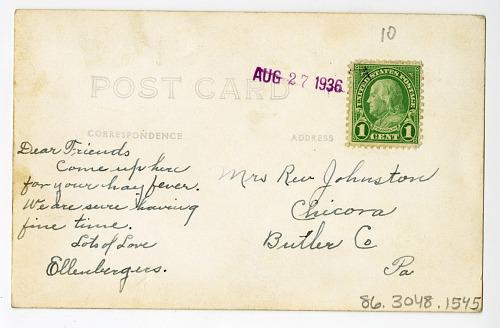 10
AUG 27 1936
UNITED STATES POSTAGE
FRANKLIN
1 CENT 1
POST CARD
CORRESPONDENCE
ADDRESS
Dear Friends
Come up here
for your hay fever.
We are sure having
fine time.
Lots of Love
Ellenbergers.
Mrs Rev Johnston
Chicora
Butler Co
Pa
86.3048.1545